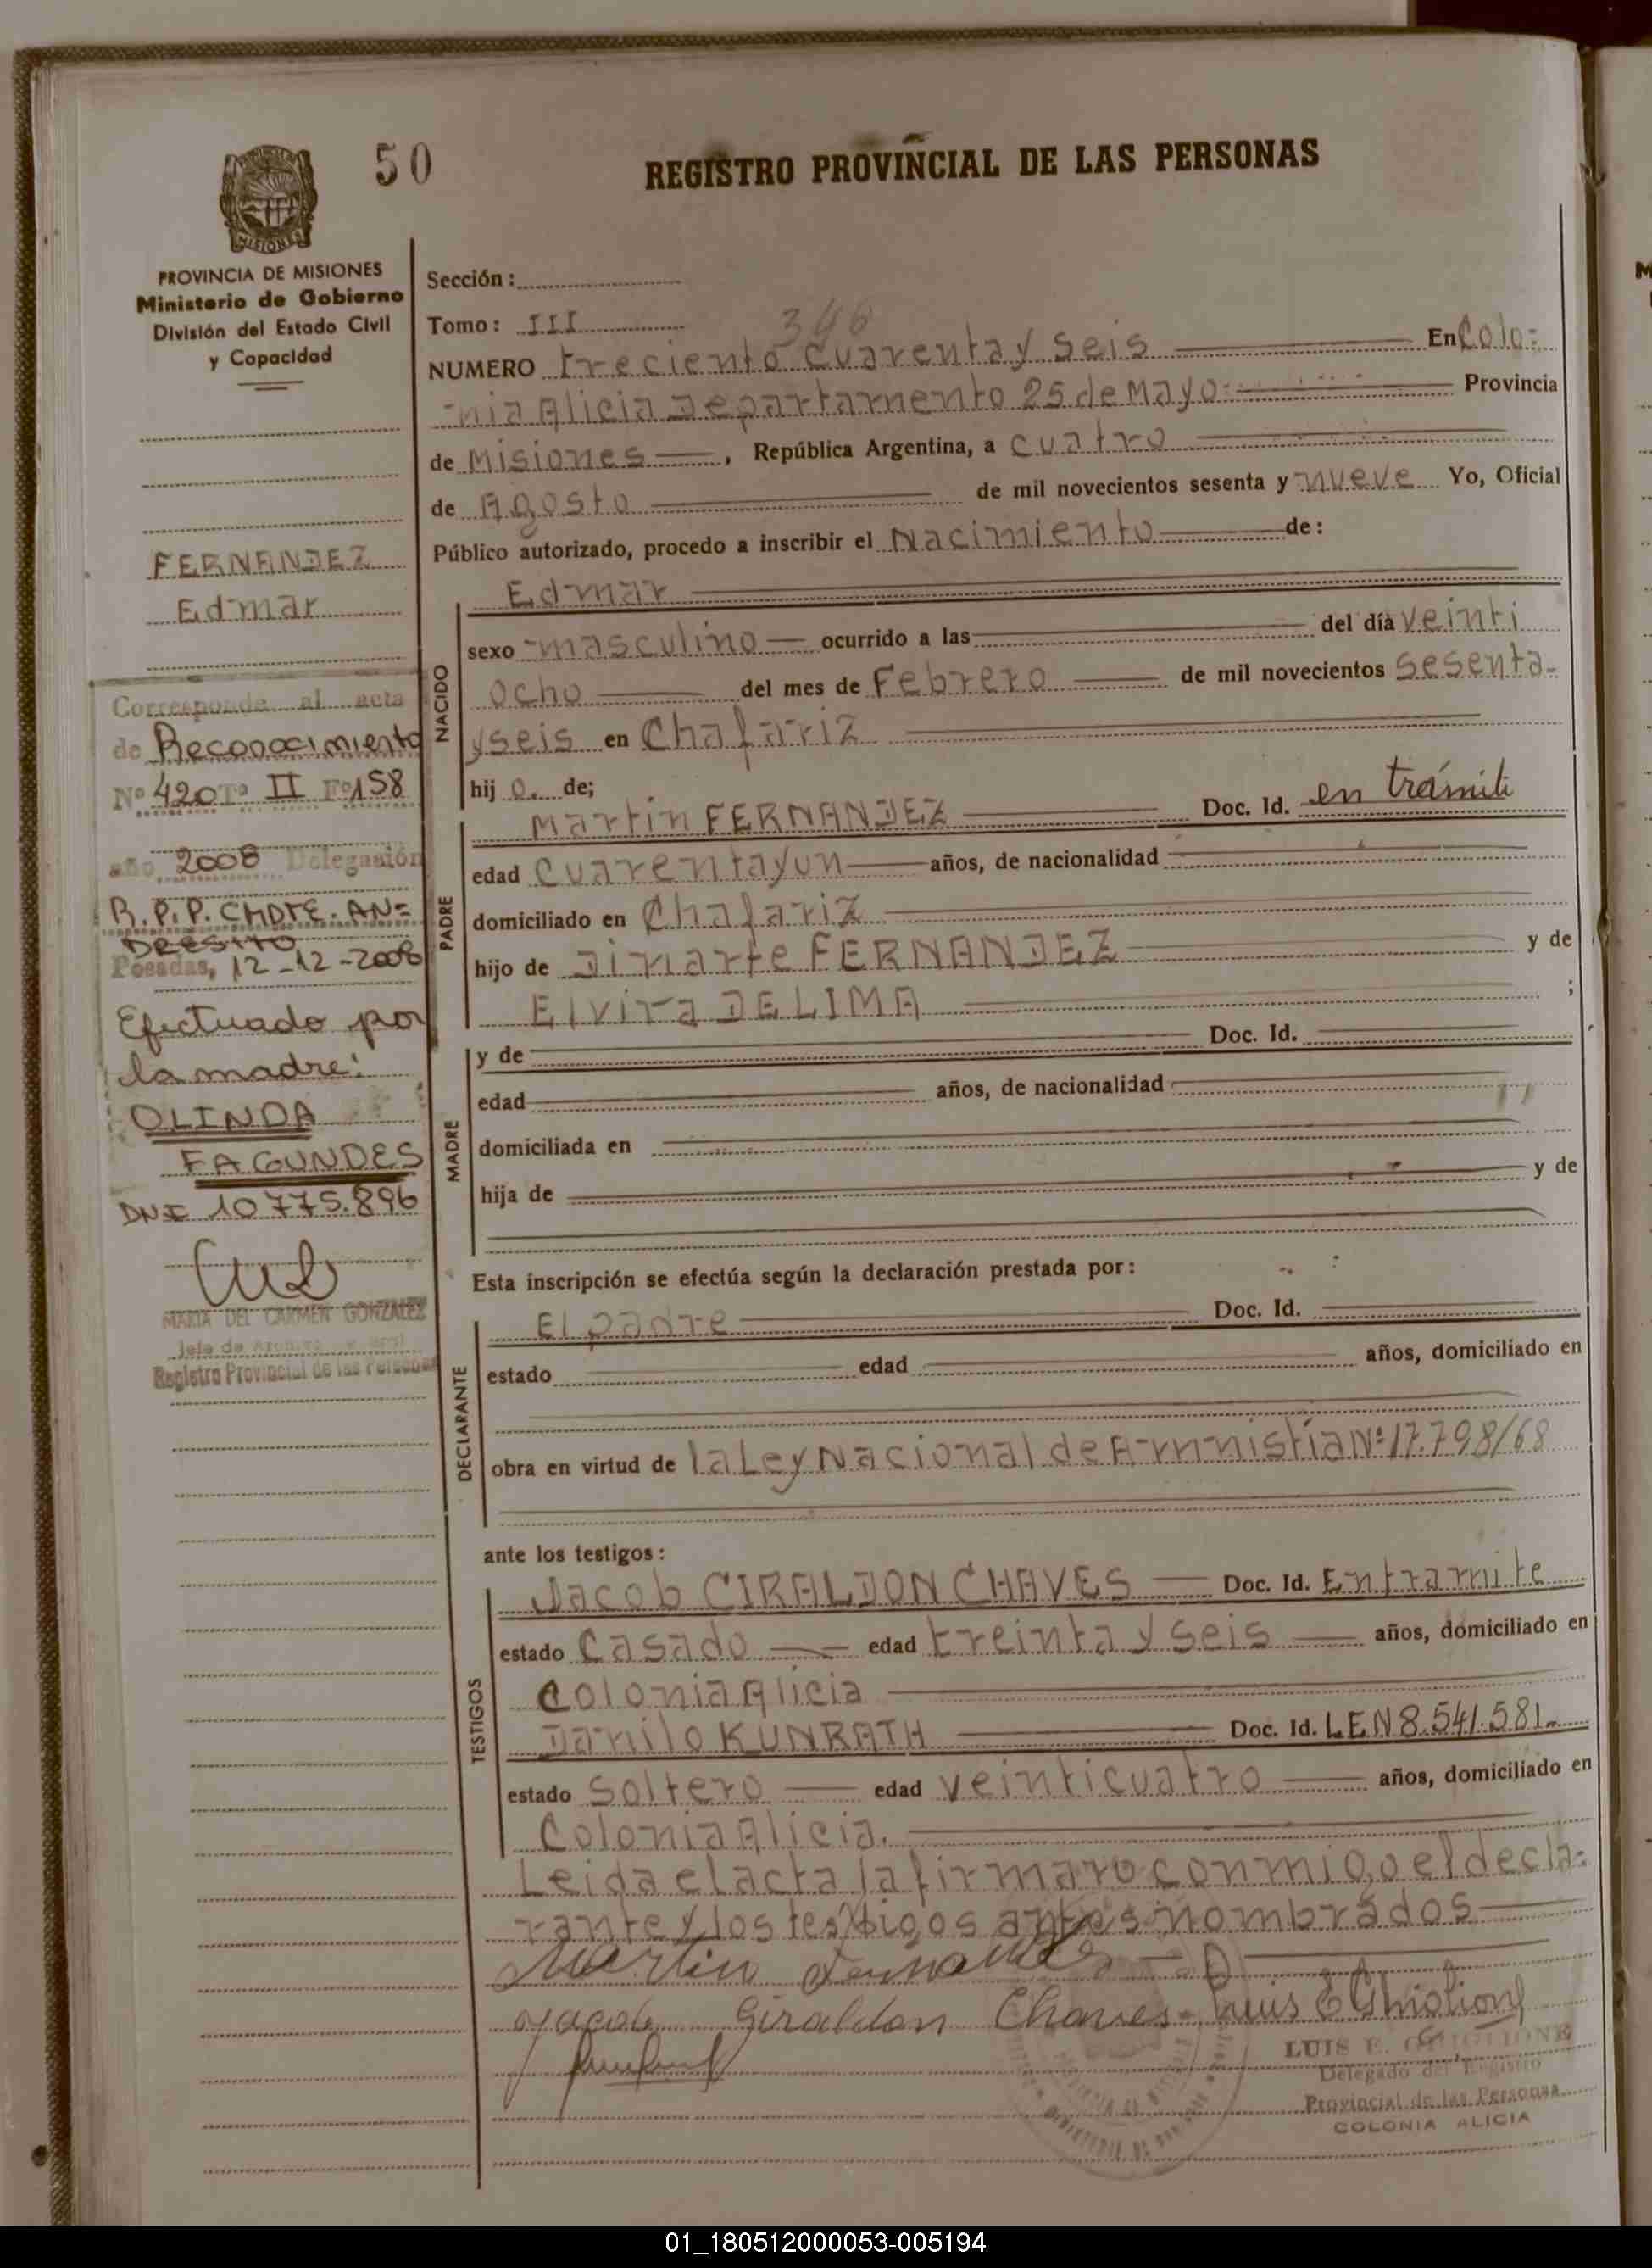 50
REGISTRO PROVINCIAL DE LAS PERSONAS
MISIONES
PROVINCIA DE MISIONES
Ministerio de Gobierno
División del Estado Civil
y Capacidad
FERNANDEZ
Edmar
Corresponde al acta
de Reconocimiento
Nº 420 Tº II Fº 158
año 2008 Delegación
R.P.P. CMDTE. AN=
DRESITO
Posadas, 12-12-2008
Efectuado por
la madre:
OLINDA
FAGUNDES
DNI 10775.896
MARIA DEL CARMEN GONZALEZ
Jefe de Archivo
Registro Provincial de las Personas
Sección:
Tomo: III
346
NUMERO treciento cuarenta y seis En Colo=
nia Alicia Departamento 25 de Mayo Provincia
de Misiones, República Argentina, a cuatro
de Agosto de mil novecientos sesenta y nueve Yo, Oficial
Público autorizado, procedo a inscribir el Nacimiento de:
NACIDO
Edmar
sexo masculino ocurrido a las del día veinti
ocho del mes de Febrero de mil novecientos sesenta-
y seis en Chafariz
hij o. de;
PADRE
Martin FERNANDEZ Doc. Id. en trámite
edad cuarenta y un años, de nacionalidad
domiciliado en Chafariz
hijo de Dinarte FERNANDEZ y de
Elvira DE LIMA ;
MADRE
y de Doc. Id.
edad años, de nacionalidad
domiciliada en
hija de y de
Esta inscripción se efectúa según la declaración prestada por:
DECLARANTE
El padre Doc. Id.
estado edad años, domiciliado en
obra en virtud de la Ley Nacional de Amnistía Nº 17.798/68
ante los testigos:
TESTIGOS
Jacob CIRALDON CHAVES Doc. Id. En tramite
estado Casado edad treinta y seis años, domiciliado en
Colonia Alicia
Danilo KUNRATH Doc. Id. LEN 8.541.581.
estado Soltero edad veinticuatro años, domiciliado en
Colonia Alicia.
Leida el acta la firmaro conmigo el decla=
rante y los testigos antes nombrados
Martin Fernandes
Jacob Giraldon Chaves Luis E Ghiglione
LUIS E. GHIGLIONE
Delegado del Registro
Provincial de las Personas
COLONIA ALICIA
01_180512000053-005194